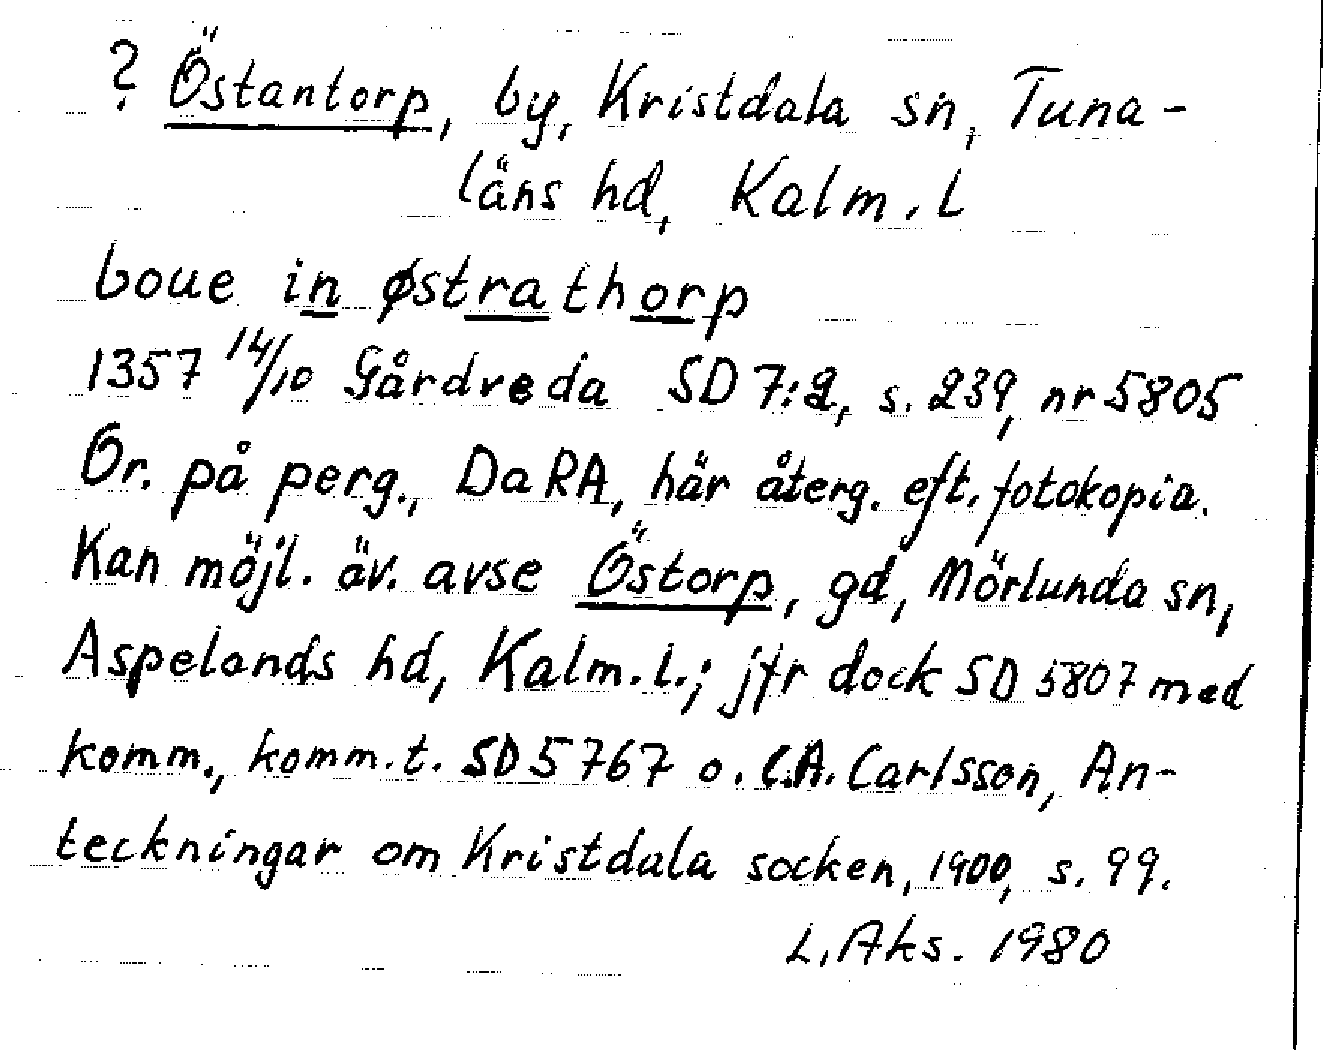 ? Östantorp, by, Kristdala sn, Tuna-
läns hd, Kalm. L
boue in østrathorp
1357 14/10 Gårdveda SD 7:2, s. 239, nr 5805
Or. på perg., DaRA, här återg. eft. fotokopia.
Kan möjl. äv. avse Östorp, gd, Mörlunda sn,
Aspelands hd, Kalm. l.; jfr dock SD 5807 med
komm., komm. t. SD 5767 o. C.A. Carlsson, An-
teckningar om Kristdala socken, 1900, s. 99.
L. Aks. 1980